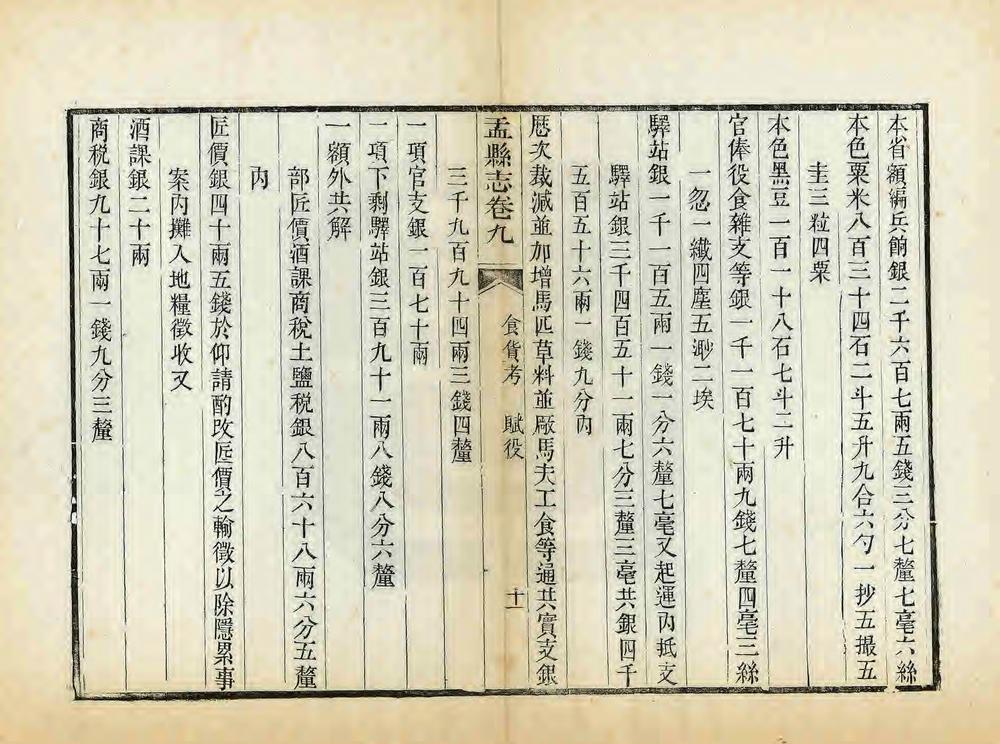 本省額編兵餉銀二千六百七兩五錢三分七釐七毫六絲
本色粟米八百三十四石二斗五升九合六勺一抄五撮五
圭三粒四粟
本色黑豆二百一十八石七斗二升
官俸役食雜支等銀一千一百七十兩九錢七釐四毫三絲
一忽一纖四塵五渺二埃
驛站銀一千一百五兩一錢一分六釐七毫又起運內抵支
驛站銀三千四百五十一兩七分三釐三毫共銀四千
五百五十六兩一錢九分內
歷次裁減並加增馬匹草料並廠馬夫工食等通共實支銀
盂縣志卷九
食貨考 賦役
十一
三千九百九十四兩三錢四釐
一項官支銀一百七十兩
二項下剩驛站銀三百九十一兩八錢八分六釐
一額外共解
部匠價酒課商稅土鹽稅銀八百六十八兩六分五釐
內
匠價銀四十兩五錢於仰請酌改匠價之輸徵以除隱累事
案內攤入地糧徵收又
酒課銀二十兩
商稅銀九十七兩一錢九分三釐